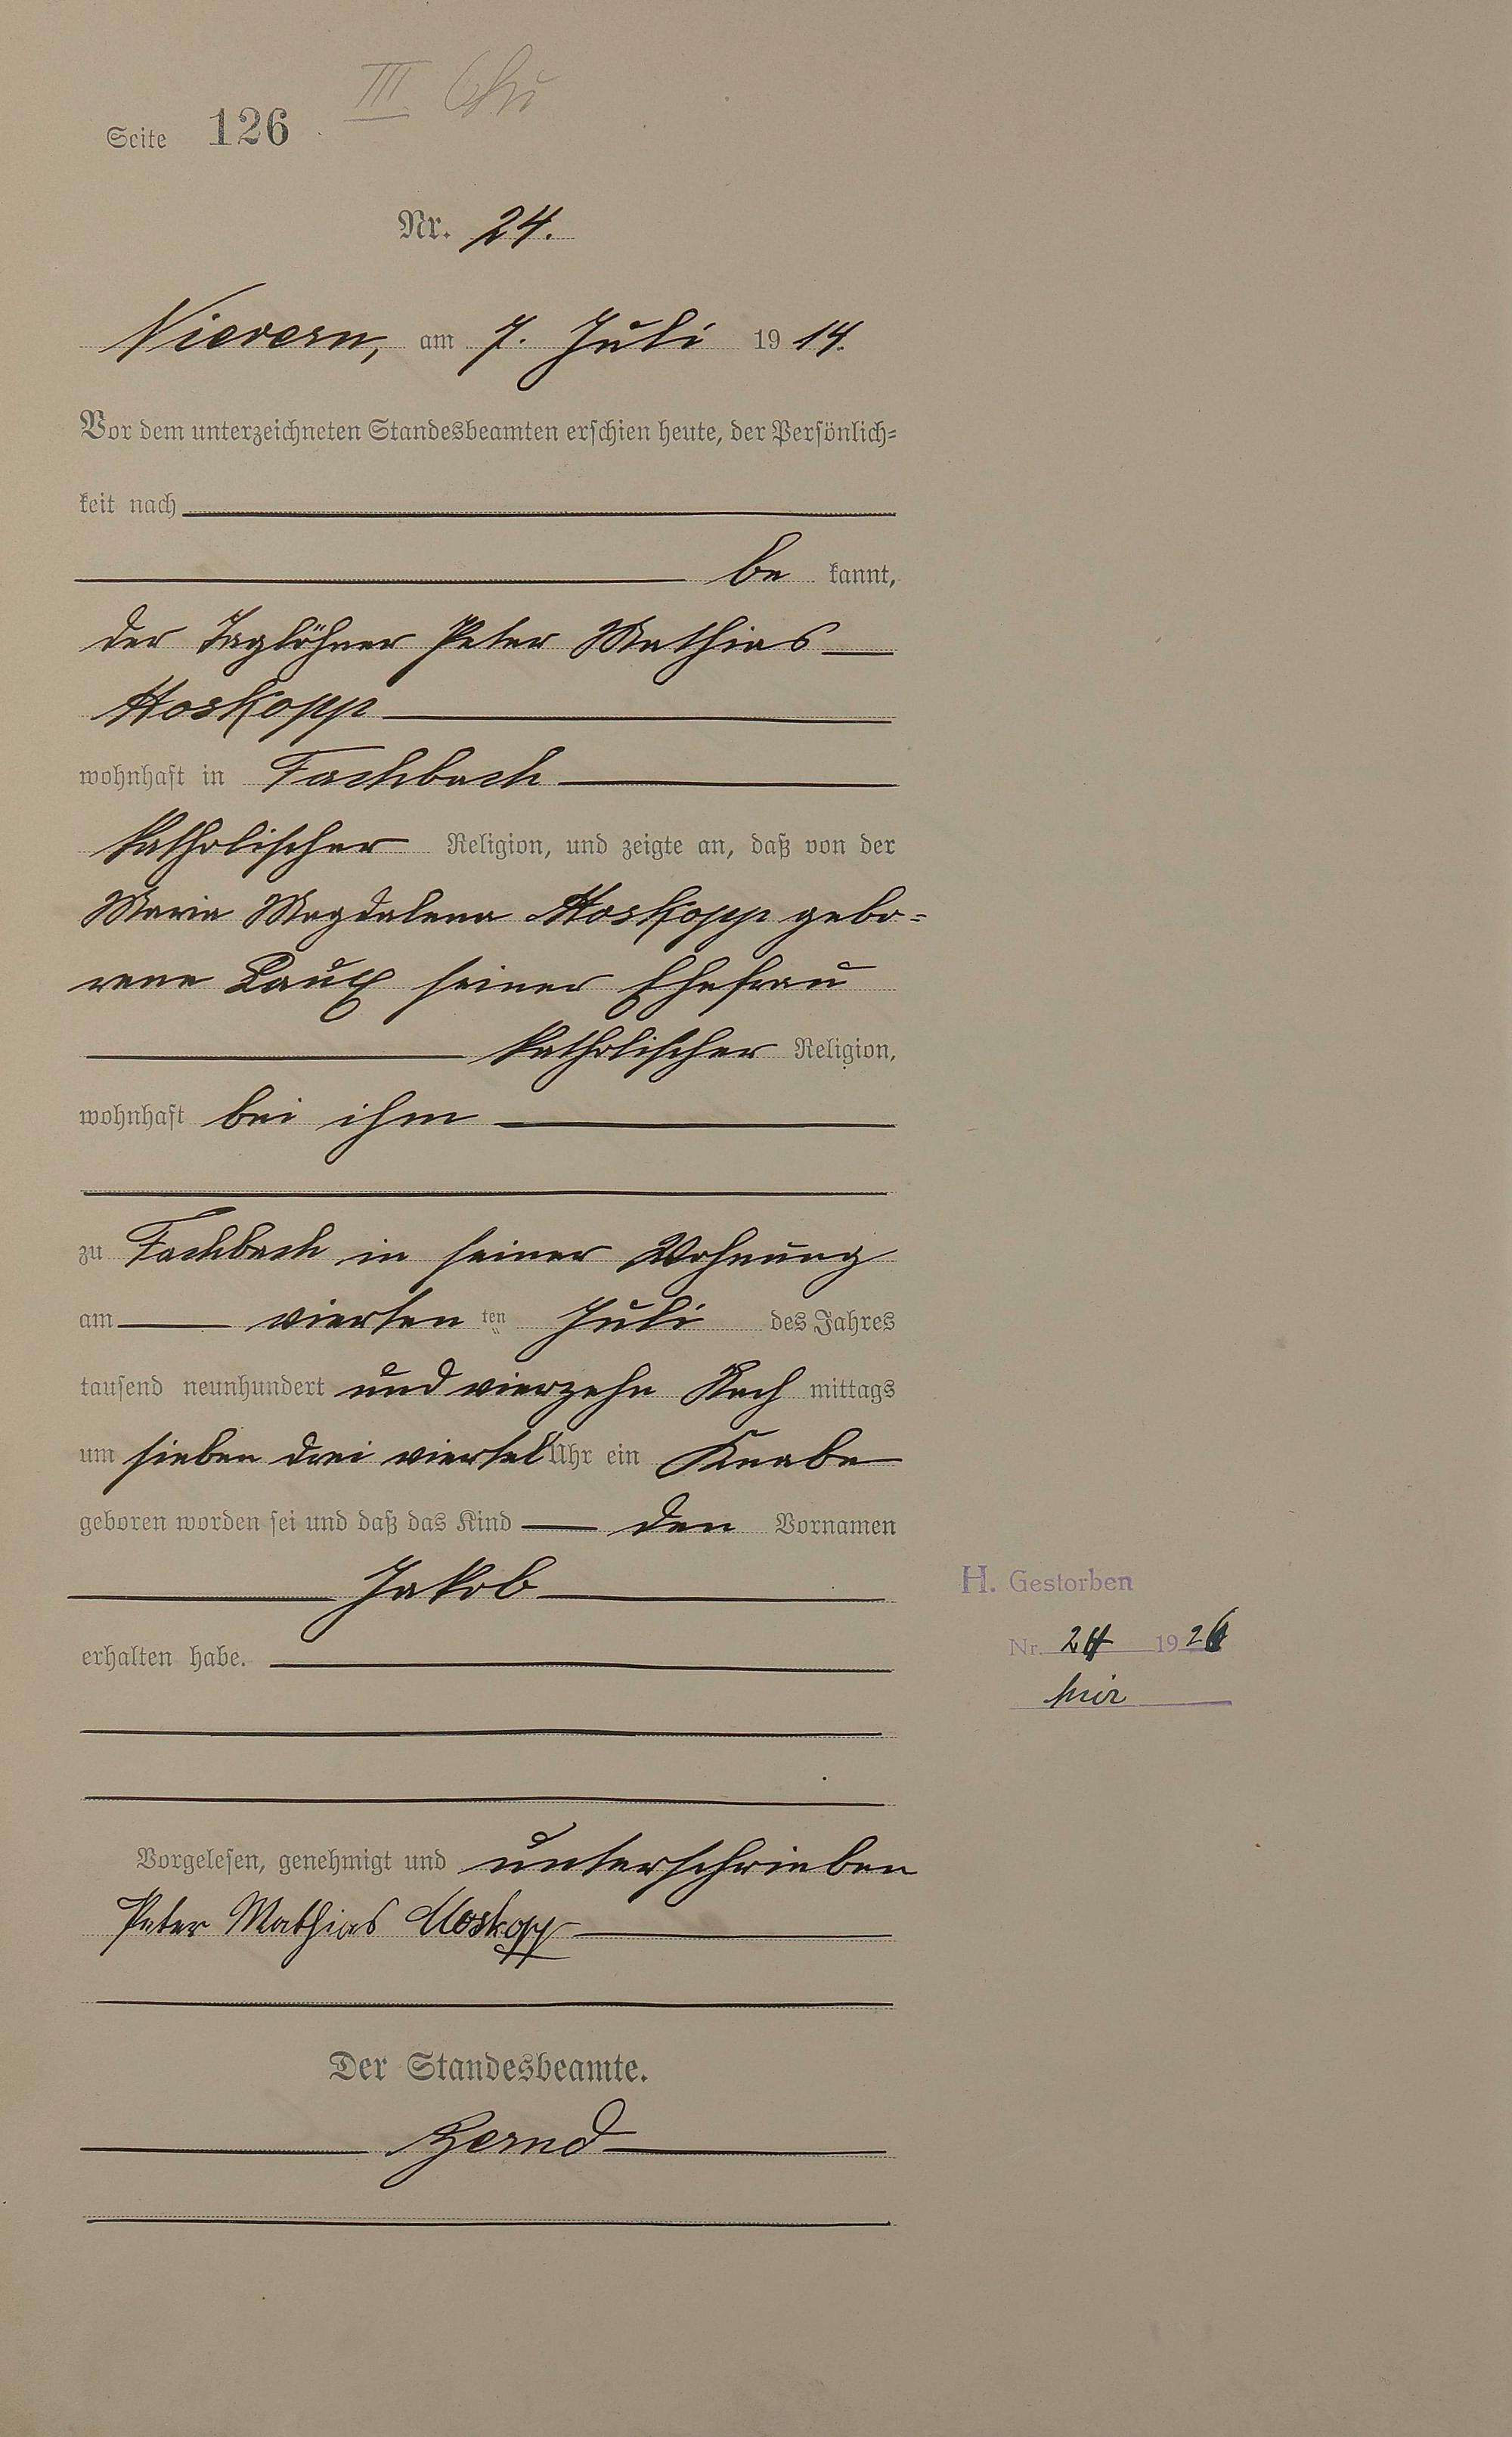 Seite 126
III
Nr. 24.
Nievern, am 7. Juli 1914.
Vor dem unterzeichneten Standesbeamten erschien heute, der Persönlich=
keit nach
be kannt,
der Taglöhner Peter Mathias
Moskopp
wohnhaft in Fachbach
katholischer Religion, und zeigte an, daß von der
Maria Magdalena Moskopp gebo=
rene Laux seiner Ehefrau
katholischer Religion,
wohnhaft bei ihm
zu Fachbach in seiner Wohnung
am vierten ten Juli des Jahres
tausend neunhundert und vierzehn Nach mittags
um sieben drei viertel Uhr ein Knabe
geboren worden sei und daß das Kind den Vornamen
Jakob
erhalten habe.
H. Gestorben
Nr. 24 1926
hier
Vorgelesen, genehmigt und unterschrieben
Peter Mathias Moskopp
Der Standesbeamte.